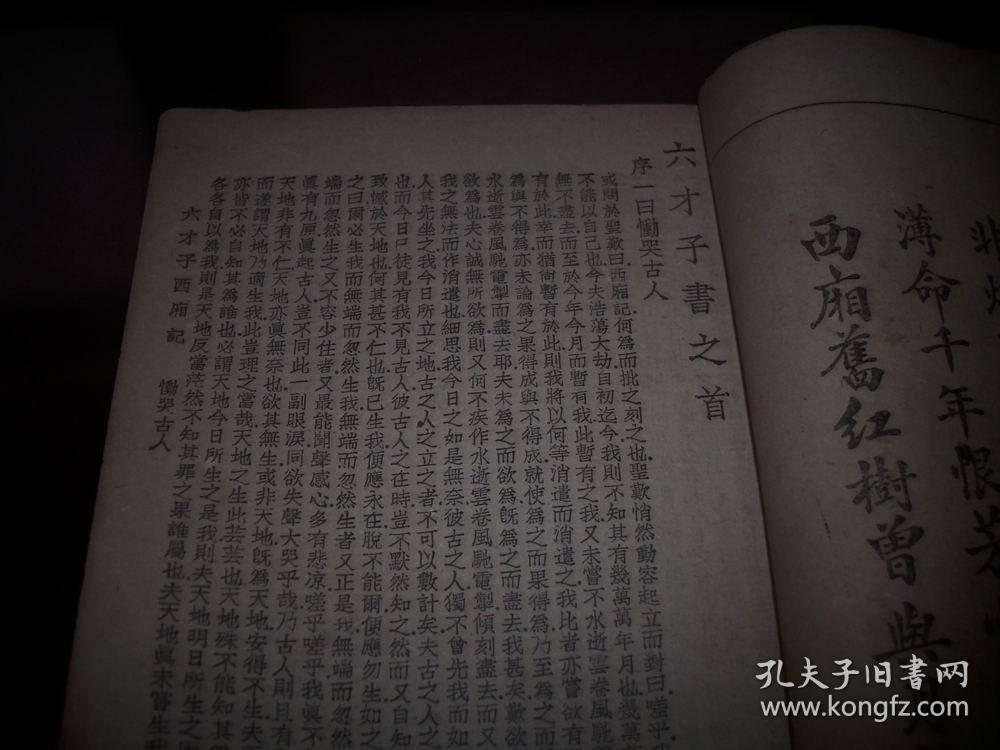 薄命千年恨芳
西廂舊紅樹曾與
六才子書之首
序一曰慟哭古人
或問於聖歎曰西廂記何為而批之刻之也聖歎悄然動容起立而對曰嗟乎
不能以自已也今夫浩蕩大劫自初迄今我則不知其有幾萬萬年月也幾萬
無不盡去而至於今年今月而暫有我此暫有之我又未嘗不水逝雲卷風馳
有於此幸而猶尚暫有於此則我將以何等消遣而消遣之我比者亦嘗欲有
為與不得為亦未論為之果得成與不得成就使為之而果得為乃至為之而
水逝雲卷風馳電掣而盡去耶夫未為之而欲為既為之而盡去我甚矣歎欲
欲為也夫心誠無所欲為則又何不疾作水逝雲卷風馳電掣傾刻盡去而又
我之無法而作消遣也細思我今日之如是無奈彼古之人獨不曾先我而如
人其先坐之我今日所立之地古之人之立之者不可以數計矣夫古之人之
也而今日已徒見有我不見古人彼古人之在時豈不默然知之然而又自知
致憾於天地也何其甚不仁也既已生我便應永在脫不能爾便應勿生如之
之曰爾必生我而無端而忽然生我無端而忽然生者又正是我無端而
端而忽然生之又不容少住者又最能聞聲感心多有悲涼嗟乎嗟乎我真不
真有九原真起古人豈不同此一副眼淚同欲失聲大哭乎哉乃古人則且有
天地非有不仁天地亦真無奈也欲其無生或非天地既為天地安得不生夫
而遂謂天地乃適生我此豈理之當哉天地之生此芸芸也天地殊不能知其
亦皆不必自知其為誰也必謂天地今日所生之是我則夫天地明日所生之
各各自以為我則是天地反當茫然不知其罪之果誰屬也夫天地真未嘗生我
六才子西廂記 慟哭古人
孔夫子旧书网
www.kongfz.com